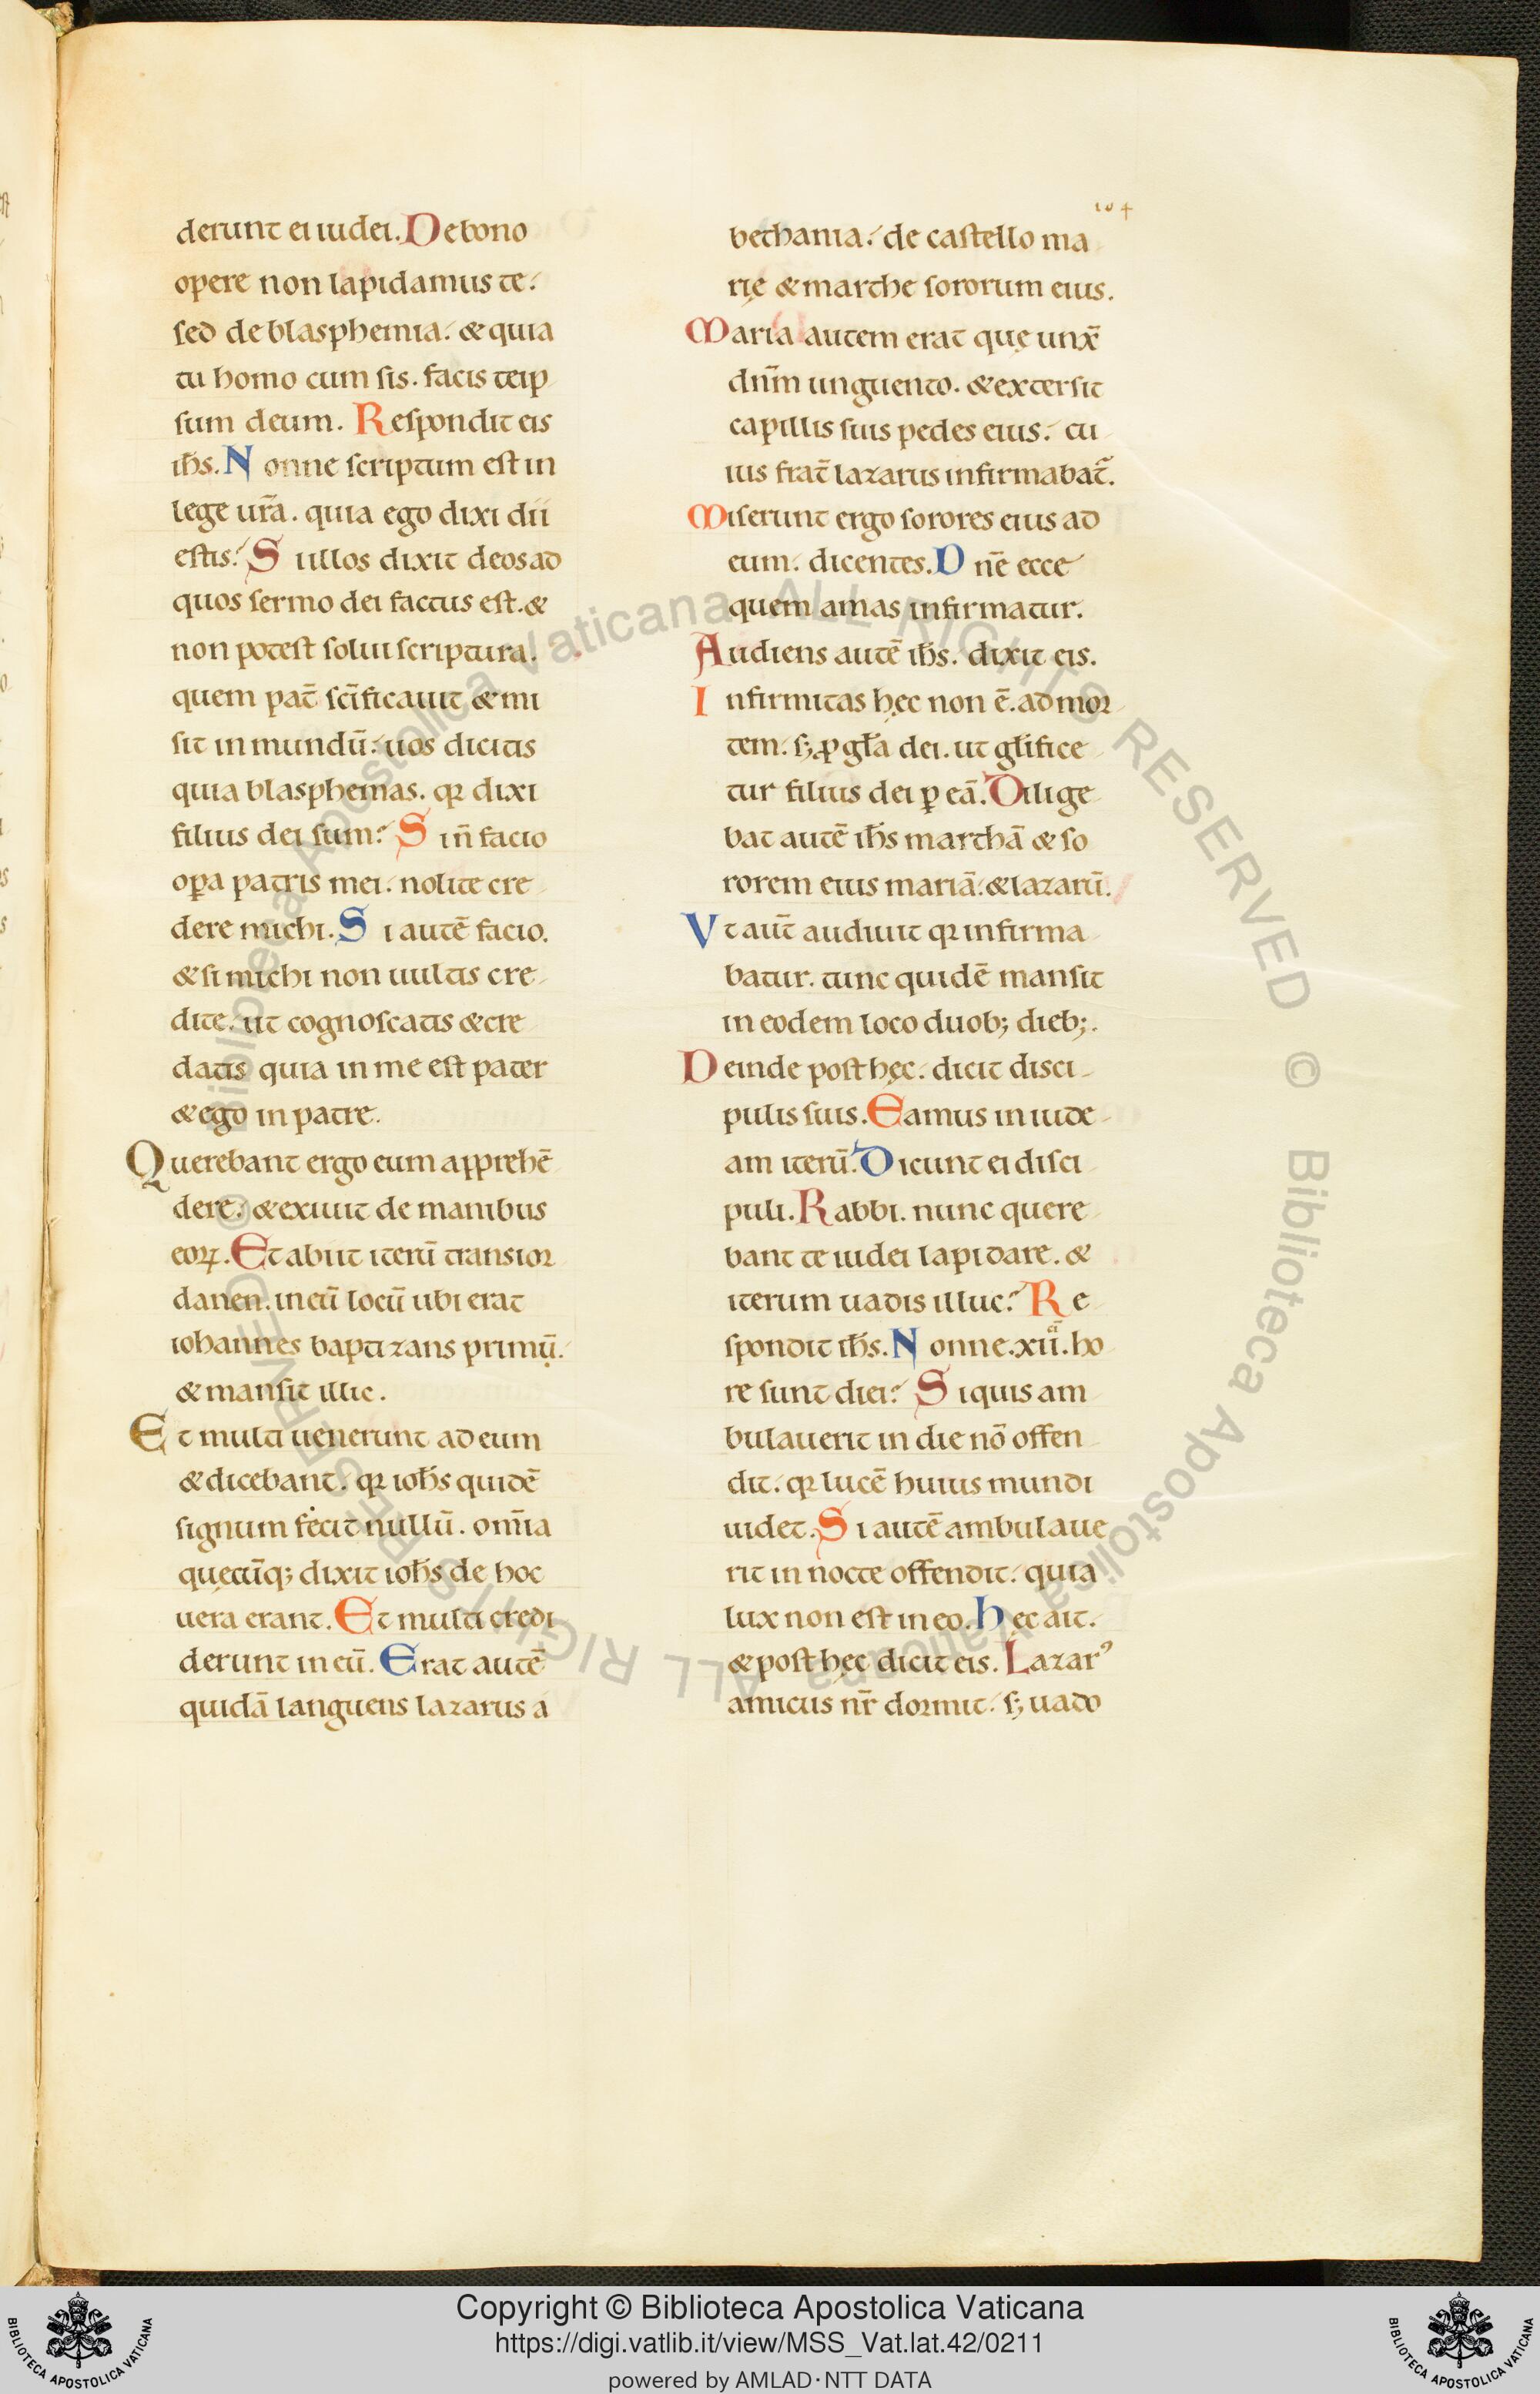 derunt ei iudei. De bono
opere non lapidamus te.
sed de blasphemia. & quia
tu homo cum sis. facis teip
sum deum. Respondit eis
ihs̄. Nonne scriptum est in
lege ur̄a. quia ego dixi dii
estis? Si illos dixit deos ad
quos sermo dei factus est. &
non potest solui scriptura.
quem pat̄ scīficauit & mi
sit in mundū. uos dicitis
quia blasphemas. qꝛ dixi
filius dei sum? Si n̄ facio
oꝑa patris mei. nolite cre
dere michi. Si autē facio.
& si michi non uultis cre
dite. ut cognoscatis & cre
datis quia in me est pater
& ego in patre.
Querebant ergo eum apprehē
dere. & exiuit de manibus
eoꝝ. Et abiit iterū transior
danen. in eū locū ubi erat
iohannes baptizans primū.
& mansit illic.
Et multi uenerunt ad eum
& dicebant. qꝛ ioh̄s quidē
signum fecit nullū. om̄ia
quęcūq; dixit ioh̄s de hoc
uera erant. Et multi credi
derunt in eū. Erat autē
quidā languens lazarus a
104
bethania. de castello ma
rię & marthe sororum eius.
Maria autem erat quę unx̄
dn̄m unguento. & extersit
capillis suis pedes eius. cu
ius frat̄ lazarus infirmabat̄.
Miserunt ergo sorores eius ad
eum. dicentes. Dn̄e ecce
quem amas infirmatur.
Audiens autē ih̄s. dixit eis.
Infirmitas hęc non ē. ad mor
tem. s; ꝓ gl̄a dei. ut gl̄ifice
tur filius dei ꝑ eā. Dilige
bat autē ih̄s marthā & so
rorem eius mariā. & lazarū.
Vt aut̄ audiuit qꝛ infirma
batur. tunc quidē mansit
in eodem loco duob; dieb;.
Deinde post hęc. dicit disci
pulis suis. Eamus in iude
am iterū. Dicunt ei disci
puli. Rabbi. nunc quere
bant te iudei lapidare. &
iterum uadis illuc? Re
spondit ih̄s. Nonne .xii. ho
re sunt diei? Si quis am
bulauerit in die nō offen
dit. qꝛ lucē huius mundi
uidet. Si autē ambulaue
rit in nocte offendit. quia
lux non est in eo. Hęc ait.
& post hęc dicit eis. Lazarꝰ
amicus nr̄ dormit. s; uado
© Biblioteca Apostolica Vaticana ALL RIGHTS RESERVED © Biblioteca Apostolica Vaticana ALL RIGHTS RESERVED
BIBLIOTECA APOSTOLICA VATICANA
Copyright © Biblioteca Apostolica Vaticana
https://digi.vatlib.it/view/MSS_Vat.lat.42/0211
powered by AMLAD·NTT DATA
BIBLIOTECA APOSTOLICA VATICANA